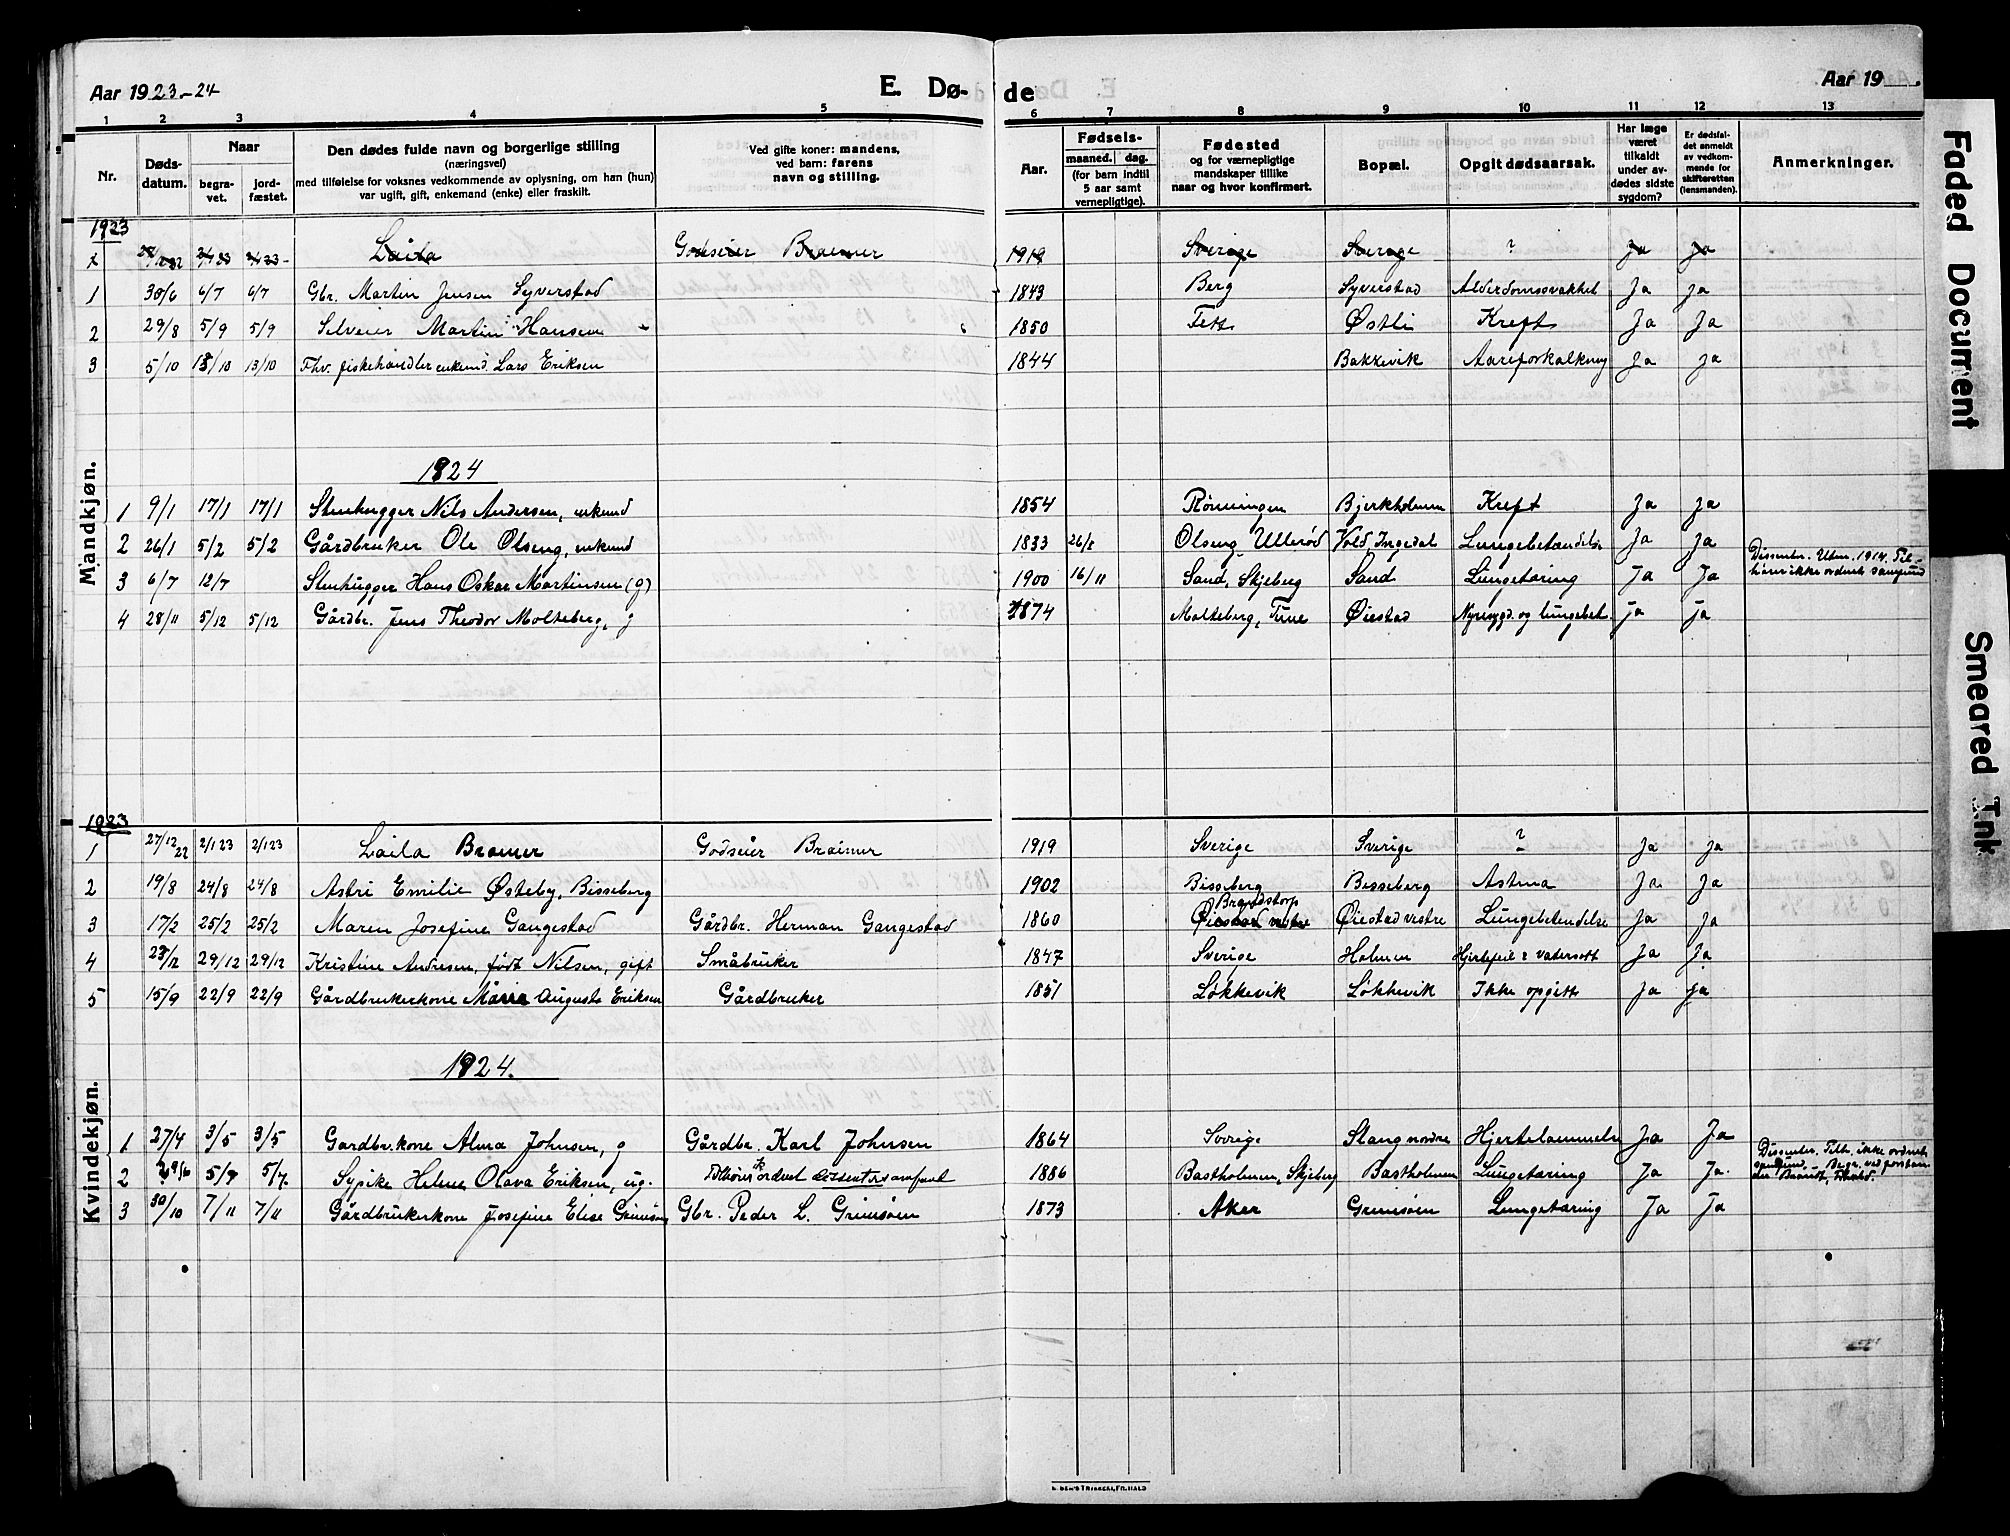 Aar 1923-24 E. Dø- de Aar 19
1 2 3 4 5 6 7 8 9 10 11 12 13
Nr. Døds-datum. Naar begra-vet. jord-fæstet. Den dødes fulde navn og borgerlige stilling (næringsvei) med tilføielse for voksnes vedkommende av oplysning, om han (hun) var ugift, gift, enkemand (enke) eller fraskilt. Ved gifte koner: mandens, ved barn: farens navn og stilling. Aar. Fødsels- maaned. dag. (for barn indtil 5 aar samt vernepligtige). Fødested og for værnepligtige mandskaper tillike naar og hvor konfirmert. Bopæl. Opgit dødsaarsak. Har læge været tilkaldt under av-dødes sidste sygdom? Er dødsfal-det anmeldt av vedkom-mende for skifteretten (lensmanden). Anmerkninger.
Mandkjøn.
1923
Laila Godseier Braemer 1919 Sverige Sverige ? Ja Ja
1 30/6 6/7 6/7 Gbr. Martin Jensen Syverstad 1843 Berg Syverstad Alderdomssvakhet Ja ja
2 29/8 5/9 5/9 Selveier Martin Hansen 1850 Østli Kreft Ja Ja
3 5/10 13/10 13/10 Fhv. fiskehandler enkemd. Lars Eriksen 1844 Bakkevik Aareforkalkning Ja ja
1924
1 9/1 17/1 17/1 Stenhugger Nils Andersen, enkemd 1854 Rönningen Bjerkholmen Kreft Ja Ja
2 26/1 5/2 5/2 Gårdbruker Ole Olseng, enkemd 1833 26/8 Olseng Ullerød Vold, Ingedal Lungebetændelse Ja Ja
3 6/7 12/7 Stenhugger Hans Oskar Martinsen (g) 1900 16/11 Sand, Skjeberg Sand Lungetæring Ja Ja Dissenter. Utm. 1914. Til-hører ikke ordnet samfund
4 28/11 5/12 5/12 Gårdbr. Jens Theodor Molteberg, g 1874 Molteberg, Tune Øiestad Nyresygd. og lungebet. ja ja
Kvindekjøn.
1923
1 27/12 22 2/1 23 2/1 23 Laila Braemer Godseier Braemer 1919 Sverige Sverige ? Ja Ja
2 19/8 24/8 24/8 Astri Emilie Østeby, Bisseberg 1902 Bisseberg Bisseberg Astma Ja Ja
3 17/2 25/2 25/2 Maren Josefine Gangestad Gårdbr. Herman Gangestad 1860 Brandstorp Øiestad vestre Øiestad vestre Lungebetendelse Ja Ja
4 23/12 29/12 29/12 Kristine Andresen, født Nilsen, gift Småbruker 1847 Sverige Holmen Hjertefeil & vatersott Ja Ja
5 15/9 22/9 22/9 Gårdbrukerkone Marie Augusta Eriksen Gårdbruker 1851 Løkkevik Løkkevik Ikke opgitt Ja Ja
1924.
1 27/4 3/5 3/5 Gardbr.kone Alma Johnsen, g Gårdbr. Karl Johnsen 1864 Sverige Stang nordre Hjertelammelse Ja Ja
2 29/6 5/7 5/7. Sypike Helene Olava Eriksen, ug. Tilhører ik ordnet dissentersamfund 1886 Bastholmen, Skjeberg Bastholmen Lungetæring Ja Ja. Dissenter. Tilh. ikke ordnet samfund. Begr. ved forstan-der Brandt, Fr.hald.
3 30/10 7/11 7/11 Gårdbrukerkone Josefine Elise Grimsøen Gbr. Peder L. Grimsøen 1873 Aker Grimsøen Lungetæring Ja Ja
Faded Document
Smeared Ink